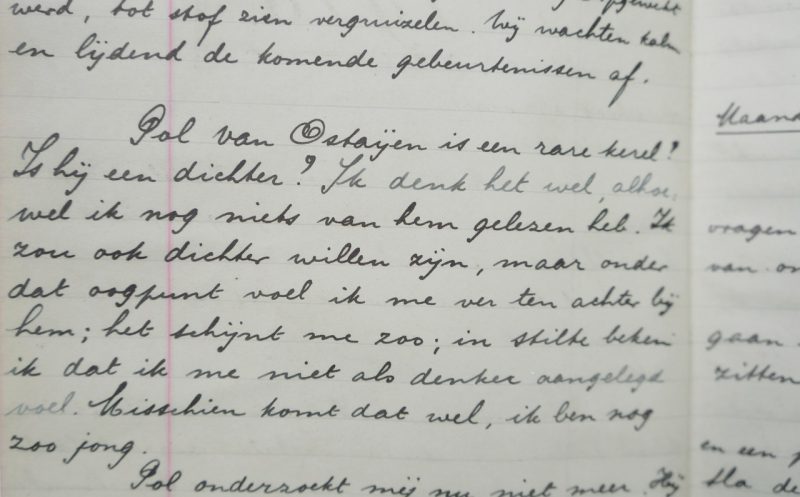 werd, tot stof zien vergruizelen. Wij wachten kalm
en lijdend de komende gebeurtenissen af.
Pol van Ostaÿen is een rare kerel!
Is hij een dichter? Ik denk het wel, alhoe-
wel ik nog niets van hem gelezen heb. Ik
zou ook dichter willen zijn, maar onder
dat oogpunt voel ik me ver ten achter bij
hem; het schijnt me zoo; in stilte beken
ik dat ik me niet als denker aangelegd
voel. Misschien komt dat wel, ik ben nog
zoo jong.
Pol onderzoekt mij nu niet meer. Hij
Maand
vragen
van
gaan
zitten
en een
sla de